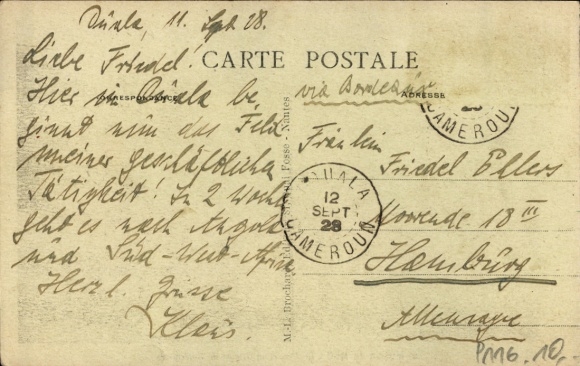 Düala, 11. Sept. 28.
Liebe Friedel!
CARTE POSTALE
CORRESPONDANCE
Hier in Düala be
ginnt nun das Feld
meiner geschäftlichen
Tätigkeit! In 2 Woch
geht es nach Angola
und Süd-West-Afrika
Herzl. Grüsse
Klaüs.
Nantes
via Bordeaux
ADRESSE
CAMEROUN
DUALA
12
SEPT
28
CAMEROUN
Fräulein
Friedel Ellers
Moorende 18 III
Hamburg
Allemagne
P116 10,-